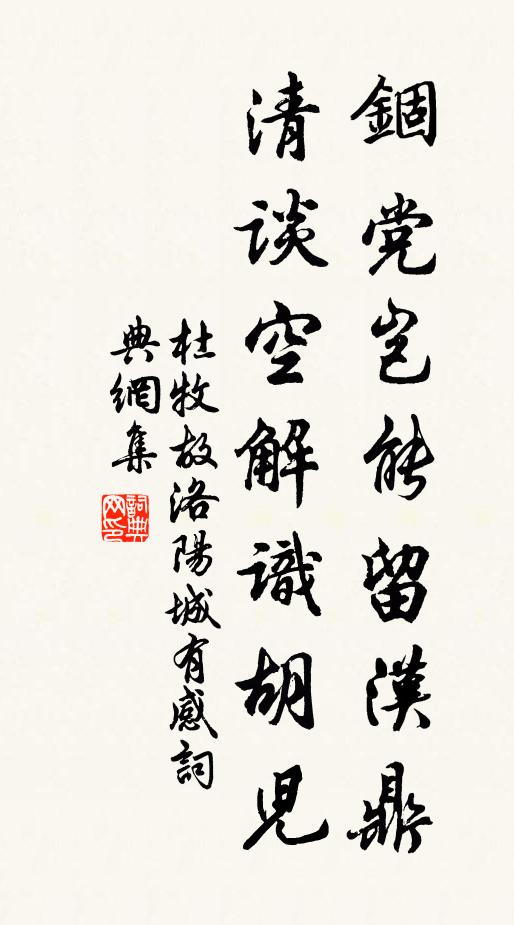 錮党岂能留漢鼎
清談空解識胡児
杜牧故洛陽城有感詞
典網集
詞典网印